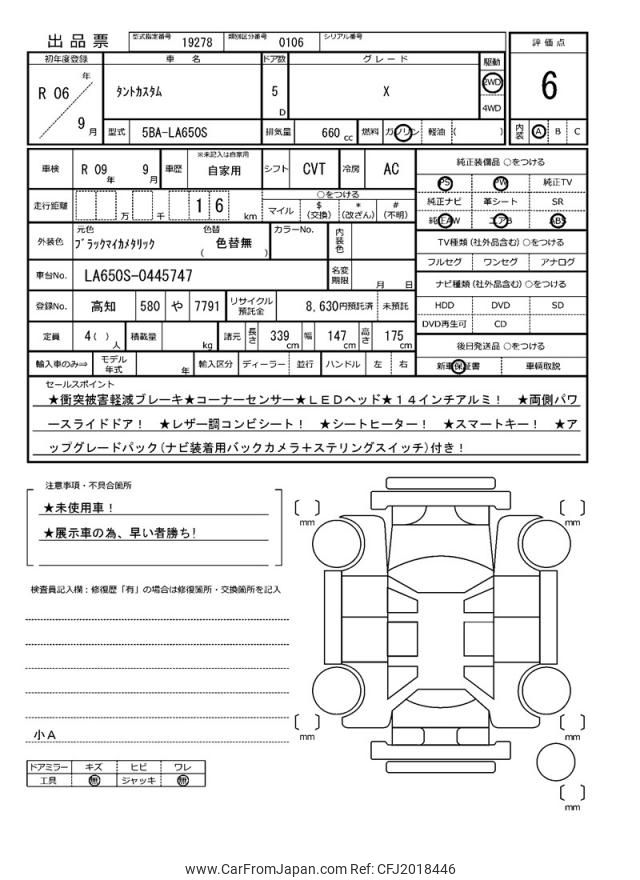 出品票 型式指定番号 19278 類別区分番号 0106 シリアル番号
初年度登録 車名 ドア数 グレード 駆動 評価点
R 06 年 9 月 タントカスタム 5 D X 2WD 4WD 6
型式 5BA-LA650S 排気量 660 cc 燃料 ガソリン 軽油 ( ) 内装 A B C
車検 R 09 年 9 月 車歴 ※未記入は自家用 自家用 シフト CVT 冷房 AC
走行距離 万 千 1 6 km ○をつける マイル $ (交換) * (改ざん) # (不明)
外装色 元色 ブラックマイカメタリック 色替 色替無 ( ) カラーNo. 内装色
車台No. LA650S-0445747 名変期限 月 日
登録No. 高知 580 や 7791 リサイクル預託金 8,630円預託済 未預託
定員 4 ( ) 人 積載量 kg 諸元 長さ 339 cm 幅 147 cm 高さ 175 cm
輸入車のみ⇒ モデル年式 年 輸入区分 ディーラー 並行 ハンドル 左 右
純正装備品 ○をつける
PS PW 純正TV
純正ナビ 革シート SR
純正AW エアB ABS
TV種類 (社外品含む) ○をつける
フルセグ ワンセグ アナログ
ナビ種類 (社外品含む) ○をつける
HDD DVD SD
DVD再生可 CD
後日発送品 ○をつける
新車保証書 車輌取説
セールスポイント
★衝突被害軽減ブレーキ★コーナーセンサー★ＬＥＤヘッド★１４インチアルミ！ ★両側パワ
ースライドドア！ ★レザー調コンビシート！ ★シートヒーター！ ★スマートキー！ ★ア
ップグレードパック(ナビ装着用バックカメラ＋ステリングスイッチ)付き！
注意事項・不具合箇所
★未使用車！
★展示車の為、早い者勝ち！
検査員記入欄：修復歴「有」の場合は修復箇所・交換箇所を記入
小Ａ
ドアミラー キズ ヒビ ワレ
工具 無 ジャッキ 無
〔 〕 mm
〔 〕 mm
〔 〕 mm
〔 〕 mm
〔 〕 mm
www.CarFromJapan.com Ref: CFJ2018446